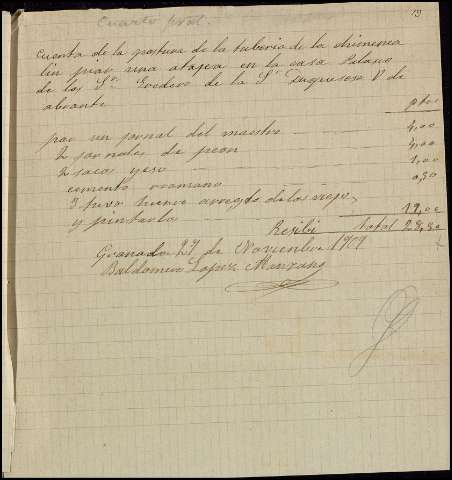 Cuarto pral.
19
Cuenta de la postura de la tuberia de la chimenea
linpiar una atagea en la casa Palacio
de los Srs. Erederos de la Sa. Duquesa Va. de
abrante
ptas
por un jornal del maestro 4,00
2 jornales de peon 5,00
2 sacos yeso 2,00
cemento rromano 0,50
3 tuvo nuevo arreglo de los viejos
y pintarlo
Total 28,50
Resibi
Granada 27 de Noviembre 1909
Baldomero Lopez Manzano